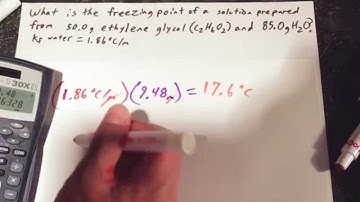 What is the freezing point of a solution prepared
from 50.0g ethylene glycol (C₂H₆O₂) and 85.0g H₂O?
Kf water = 1.86°C/m
(1.86°C/m)(9.48m) = 17.6°C
30X